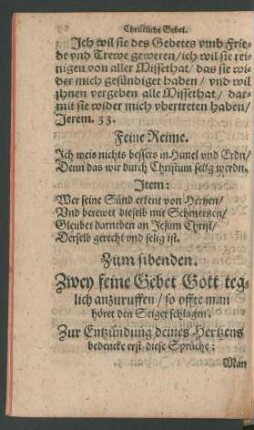 Christliche Gebet.
Ich wil sie des Gebetes vmb Frie-
de vnd Trewe geweren/ ich wil sie rei-
nigen von aller Missethat/ das sie wi-
der mich gesündiget haben/ vnd wil
jhnen vergeben alle Missethat/ dar-
mit sie wider mich vbertreten haben/
Jerem. 33.
Feine Reime.
Ich weis nichts bessers in Himel vnd Erdn/
Denn das wir durch Christum selig werdn.
Item:
Wer seine Sünd erkent von Hertzen/
Vnd berewet dieselb mit Schmertzen/
Gleubet darneben an Jesum Christ/
Derselb gerecht vnd selig ist.
Zum sibenden.
Zwey feine Gebet Gott teg-
lich anzuruffen/ so offte man
höret den Seiger schlagen.
Zur Entzündung deines Hertzens
bedencke erst diese Sprüche:
Man